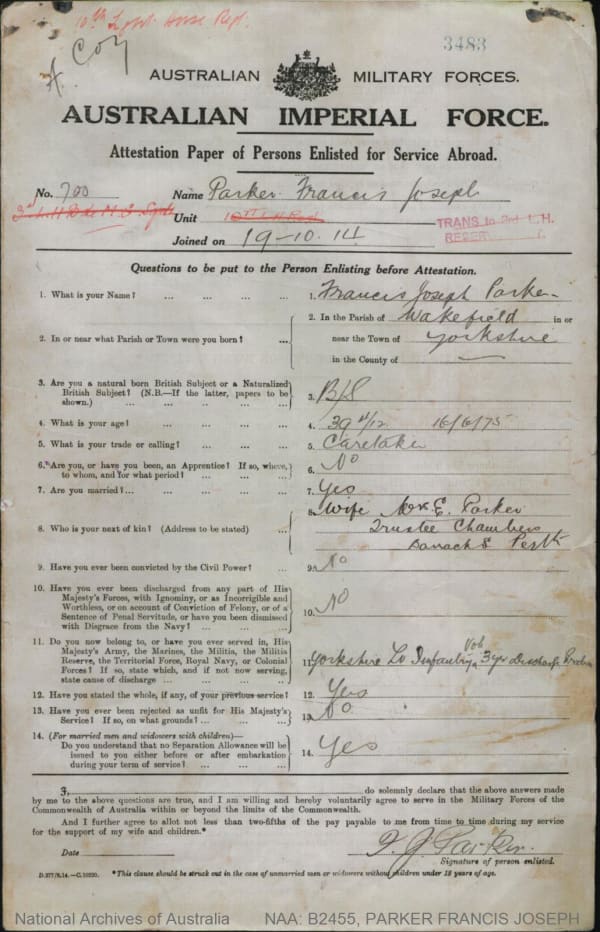 10th Light Horse Regt.
A. Coy
3483
AUSTRALIAN MILITARY FORCES.
AUSTRALIAN IMPERIAL FORCE.
Attestation Paper of Persons Enlisted for Service Abroad.
No. 700 Name Parker Francis Joseph
Unit TRANS to 3rd L.H.
RESER
Joined on 19-10.14
Questions to be put to the Person Enlisting before Attestation.
1. What is your Name? ... ... ... 1. Francis Joseph Parker
2. In or near what Parish or Town were you born? ... 2. In the Parish of Wakefield in or
near the Town of Yorkshire
in the County of —
3. Are you a natural born British Subject or a Naturalized
British Subject? (N.B.—If the latter, papers to be
shown.) ... ... ... ... 3. B/S
4. What is your age? ... ... ... 4. 39 4/12 16/6/75
5. What is your trade or calling? ... ... ... 5. Caretaker
6. Are you, or have you been, an Apprentice? If so, where,
to whom, and for what period? ... ... ... 6. No
7. Are you married? ... ... ... ... 7. Yes
8. Who is your next of kin? (Address to be stated) ... 8. Wife Mrs E. Parker
Trustee Chambers
Barrack St Perth
9. Have you ever been convicted by the Civil Power? ... 9. No
10. Have you ever been discharged from any part of His
Majesty's Forces, with Ignominy, or as Incorrigible and
Worthless, or on account of Conviction of Felony, or of a
Sentence of Penal Servitude, or have you been dismissed
with Disgrace from the Navy? ... ... ... 10. No
11. Do you now belong to, or have you ever served in, His
Majesty's Army, the Marines, the Militia, the Militia
Reserve, the Territorial Force, Royal Navy, or Colonial
Forces? If so, state which, and if not now serving,
state cause of discharge ... ... ... 11. Yorkshire Lt Infantry Vol 3 yr Discharge
12. Have you stated the whole, if any, of your previous service? 12. Yes
13. Have you ever been rejected as unfit for His Majesty's
Service? If so, on what grounds? ... ... ... 13. No
14. (For married men and widowers with children)—
Do you understand that no Separation Allowance will be
issued to you either before or after embarkation
during your term of service? ... ... ... 14. Yes
I, do solemnly declare that the above answers made
by me to the above questions are true, and I am willing and hereby voluntarily agree to serve in the Military Forces of the
Commonwealth of Australia within or beyond the limits of the Commonwealth.
And I further agree to allot not less than two-fifths of the pay payable to me from time to time during my service
for the support of my wife and children.*
Date F. J. Parker.
Signature of person enlisted.
*This clause should be struck out in the case of unmarried men or widowers without children under 18 years of age.
National Archives of Australia NAA: B2455, PARKER FRANCIS JOSEPH